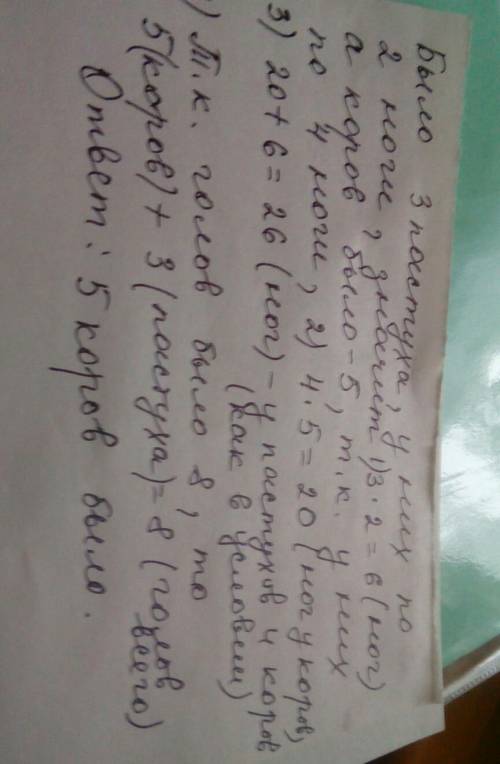 Было 3 пастуха, у них по
2 ноги, значит 1) 3·2=6 (ног)
а коров было - 5, т.к. у них
по 4 ноги, 2) 4·5=20 (ног у коров)
3) 20+6=26 (ног) - у пастухов и коров
(как в условии)
) Т.к. голов было 8, то
5(коров)+3(пастуха)=8 (голов
всего)
Ответ: 5 коров было.